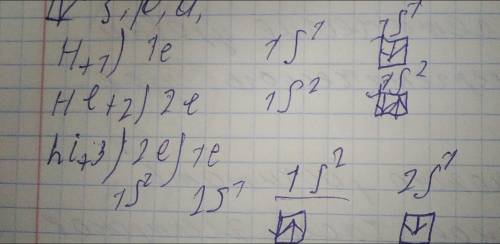 s, p, d,
H+1) 1e 1S¹ 1S¹
He+2) 2e 1S² 1S²
Li+3) 2e) 1e
1S² 2S¹ 1S² 2S¹